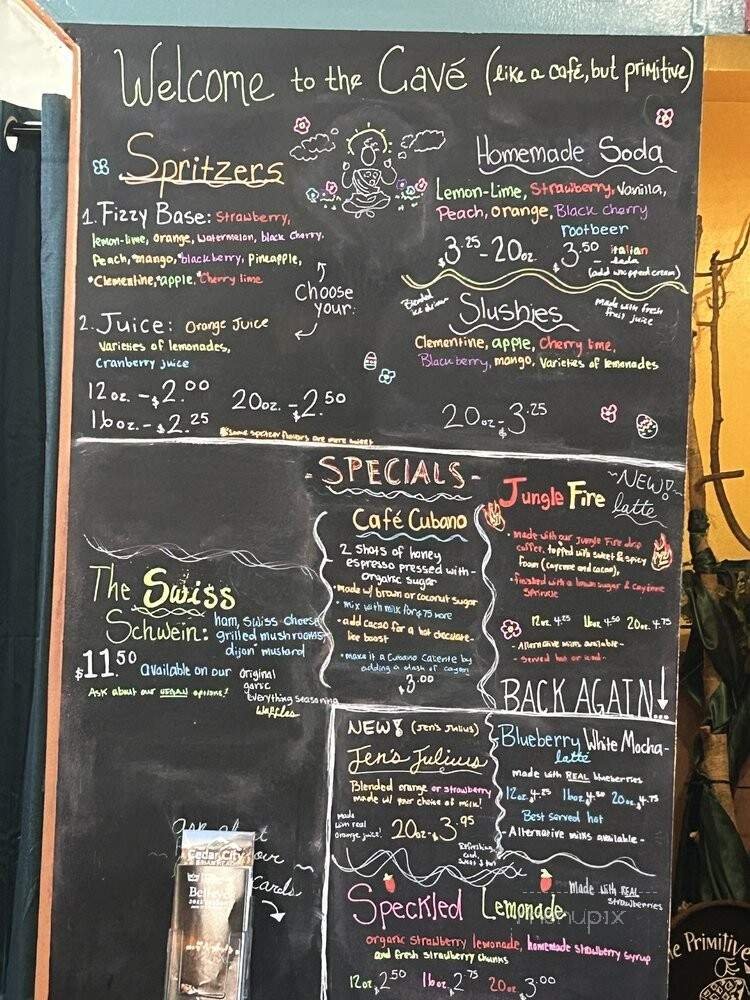 Welcome to the Cavé (like a café, but primitive)
Spritzers
1. Fizzy Base: Strawberry,
lemon-lime, orange, watermelon, black cherry,
Peach, mango, blackberry, pineapple,
*Clementine, *apple, *Cherry lime
Choose
your:
2. Juice: Orange Juice
Varieties of lemonades,
Cranberry juice
12 oz. - $2.00
16 oz. - $2.25
20 oz. - $2.50
*Some spritzer flavors are more sweet
Homemade Soda
Lemon-Lime, Strawberry, Vanilla,
Peach, orange, Black cherry
rootbeer
$3.25 - 20oz.
$3.50 - italian
soda
(add whopped cream)
Blended
ice drinks
Slushies
made with fresh
fruit juice
Clementine, apple, Cherry lime,
Blackberry, mango, Varieties of lemonades
20oz - $3.25
- SPECIALS -
Café Cubano
2 shots of honey
espresso pressed with -
organic sugar
- made w/ brown or coconut sugar
- mix with milk for $.75 more
- add cacao for a hot chocolate -
like boost
- make it a Cubano Caliente by
adding a dash of cayenne
$3.00
~NEW!~
Jungle Fire latte
- made with our Jungle Fire drip
coffee, topped with sweet & spicy
foam (cayenne and cacao),
- finished with a brown sugar & cayenne
sprinkle
12oz 4.25 16oz 4.50 20oz 4.75
- Alternative milks available -
- served hot or iced -
The Swiss
Schwein: ham, swiss cheese
grilled mushrooms,
dijon mustard
$11.50 available on our original
garlic
everything seasoning
Waffles
Ask about our VEGAN options!
BACK AGAIN...
NEW! (Jen's Julius)
Jen's Julius
Blended orange or strawberry
made w/ your choice of milk!
made
with real
orange juice!
20oz - $3.95
Refreshing,
Blueberry White Mocha -
latte
made with REAL blueberries
12oz 4.25 16oz 4.50 20oz 4.75
Best served hot
- Alternative milks available -
our
Cards
Cedar City
Believe
made with REAL
strawberries
Speckled Lemonade
menupix
organic strawberry lemonade, homemade strawberry syrup
and fresh strawberry chunks
12oz $2.50 16oz $2.75 20oz $3.00
Primitive